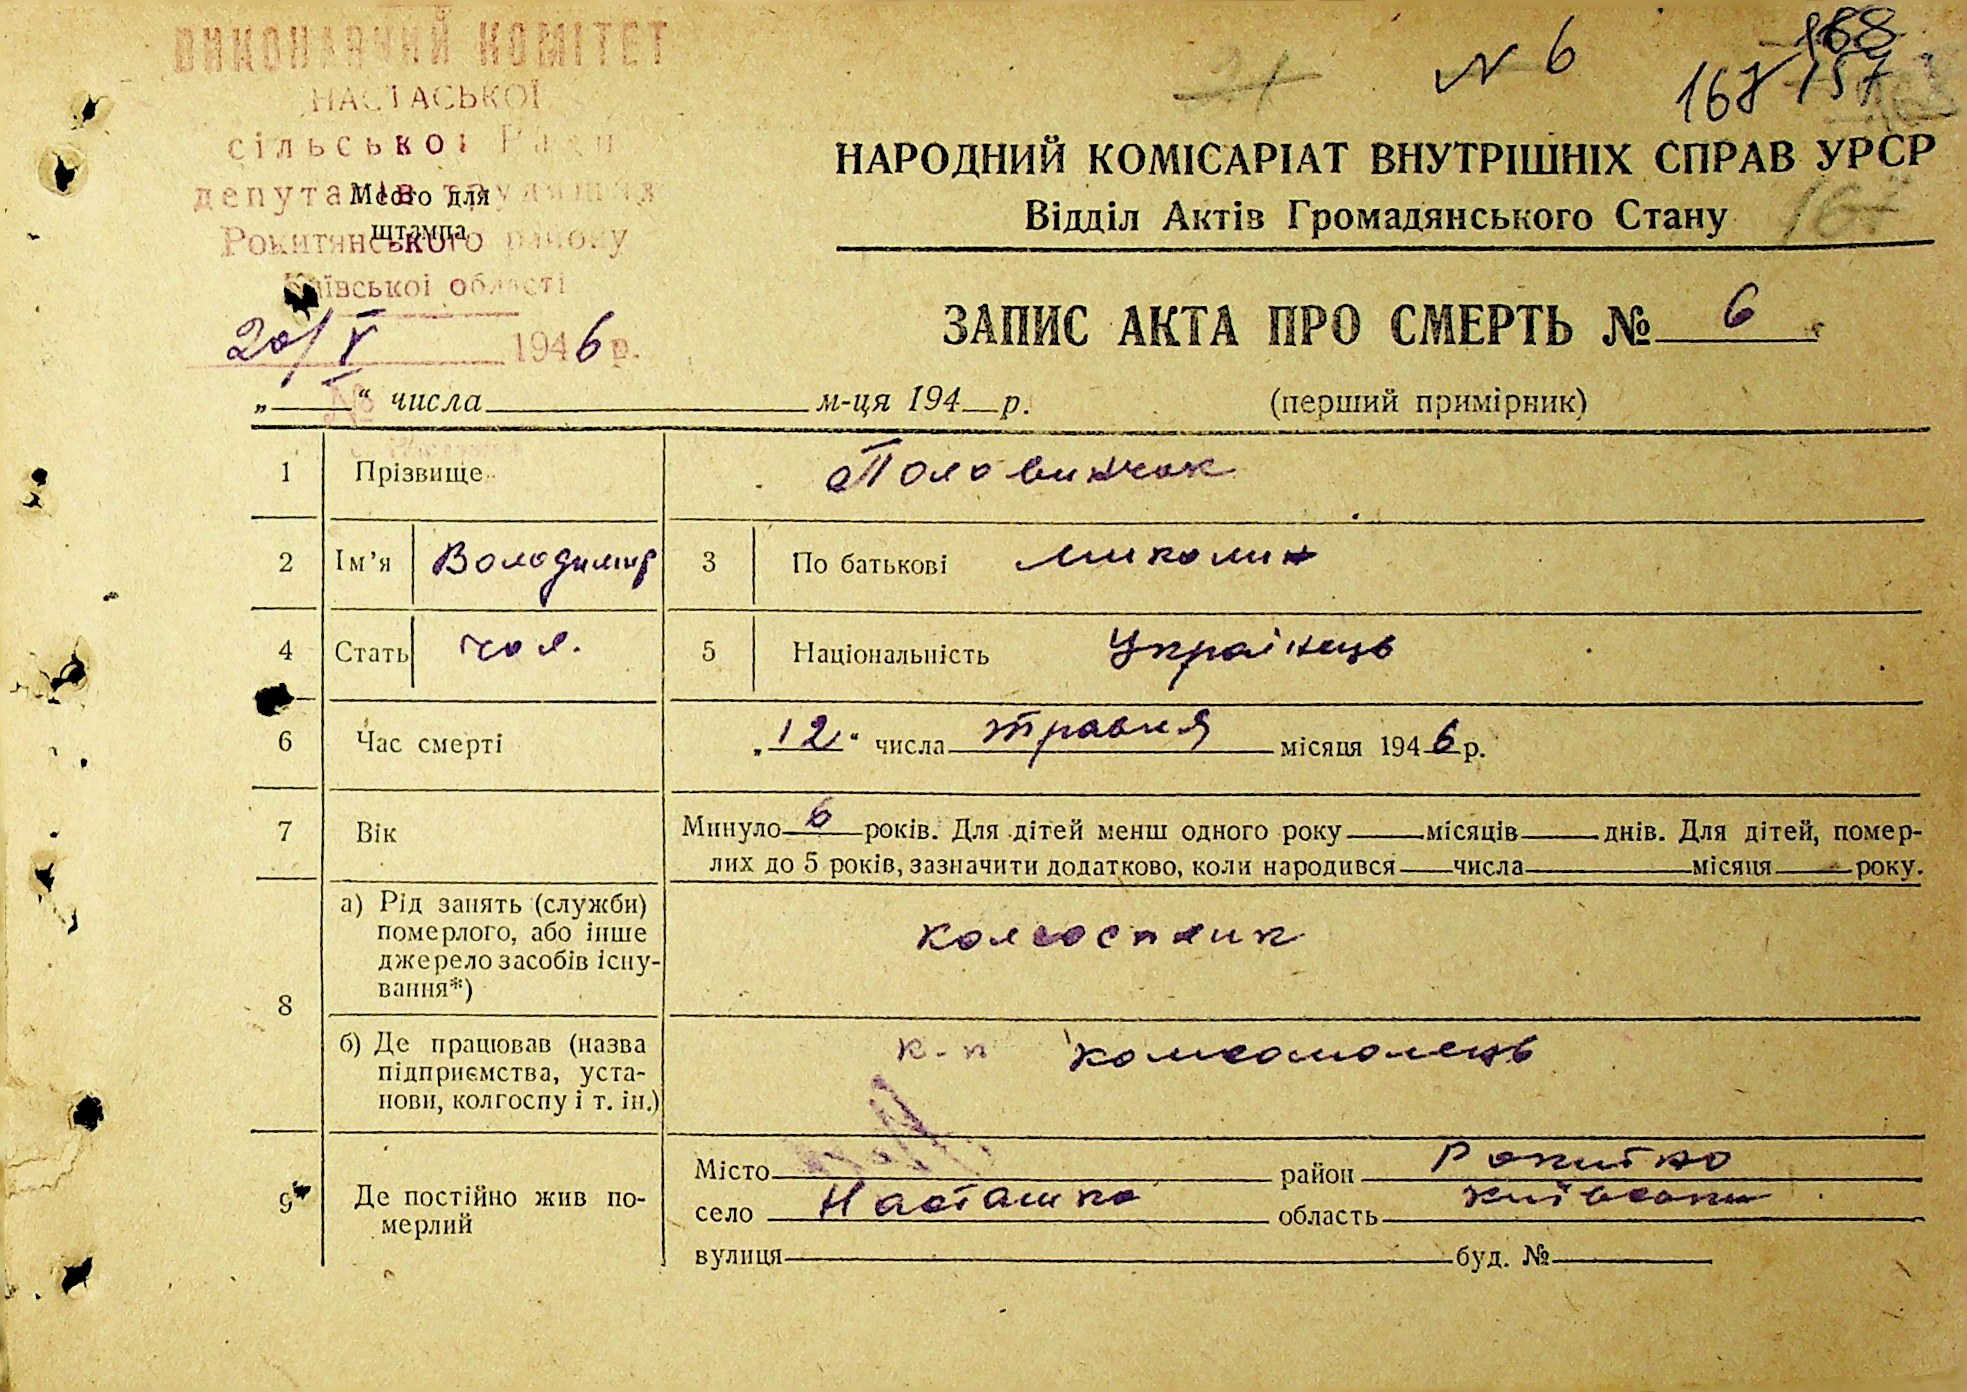 ВИКОНАВЧИЙ КОМІТЕТ
НАСТАСЬКОЇ
сільської Ради
депутатів трудящих
Рокитянського району
Київської області
Место для
штампа
20/V 1946 р.
№
N 6
168
167 157
167
НАРОДНИЙ КОМІСАРІАТ ВНУТРІШНІХ СПРАВ УРСР
Відділ Актів Громадянського Стану
ЗАПИС АКТА ПРО СМЕРТЬ № 6
„ “ числа м-ця 194 р. (перший примірник)
1 Прізвище Половинчак
2 Ім’я Володимир 3 По батькові Миколин
4 Стать чол. 5 Національність Українець
6 Час смерті „12“ числа травня місяця 1946 р.
7 Вік Минуло 6 років. Для дітей менш одного року місяців днів. Для дітей, помер-
лих до 5 років, зазначити додатково, коли народився числа місяця року.
8 а) Рід занять (служби)
померлого, або інше
джерело засобів існу-
вання*)
колгоспник
б) Де працював (назва
підприємства, уста-
нови, колгоспу і т. ін.)
к-п комсомолець
9 Де постійно жив по-
мерлий
Місто район Рокитно
село Насташка область Київська
вулиця буд. №